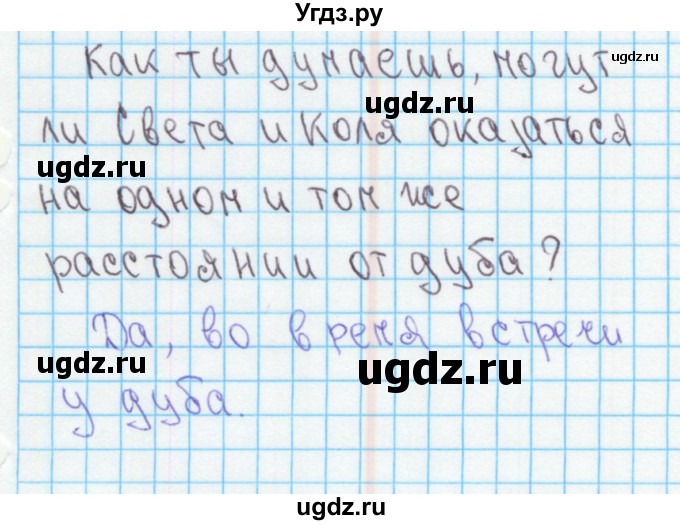 Угдз.ру
Как ты думаешь, могут
ugdz.ru
ugdz.ru
ли Света и Коля оказаться
ugdz.ru
на одном и том же
расстоянии от дуба?
ugdz.ru
Да, во время встречи
ugdz.ru
ugdz.ru
у дуба.
ugdz.ru